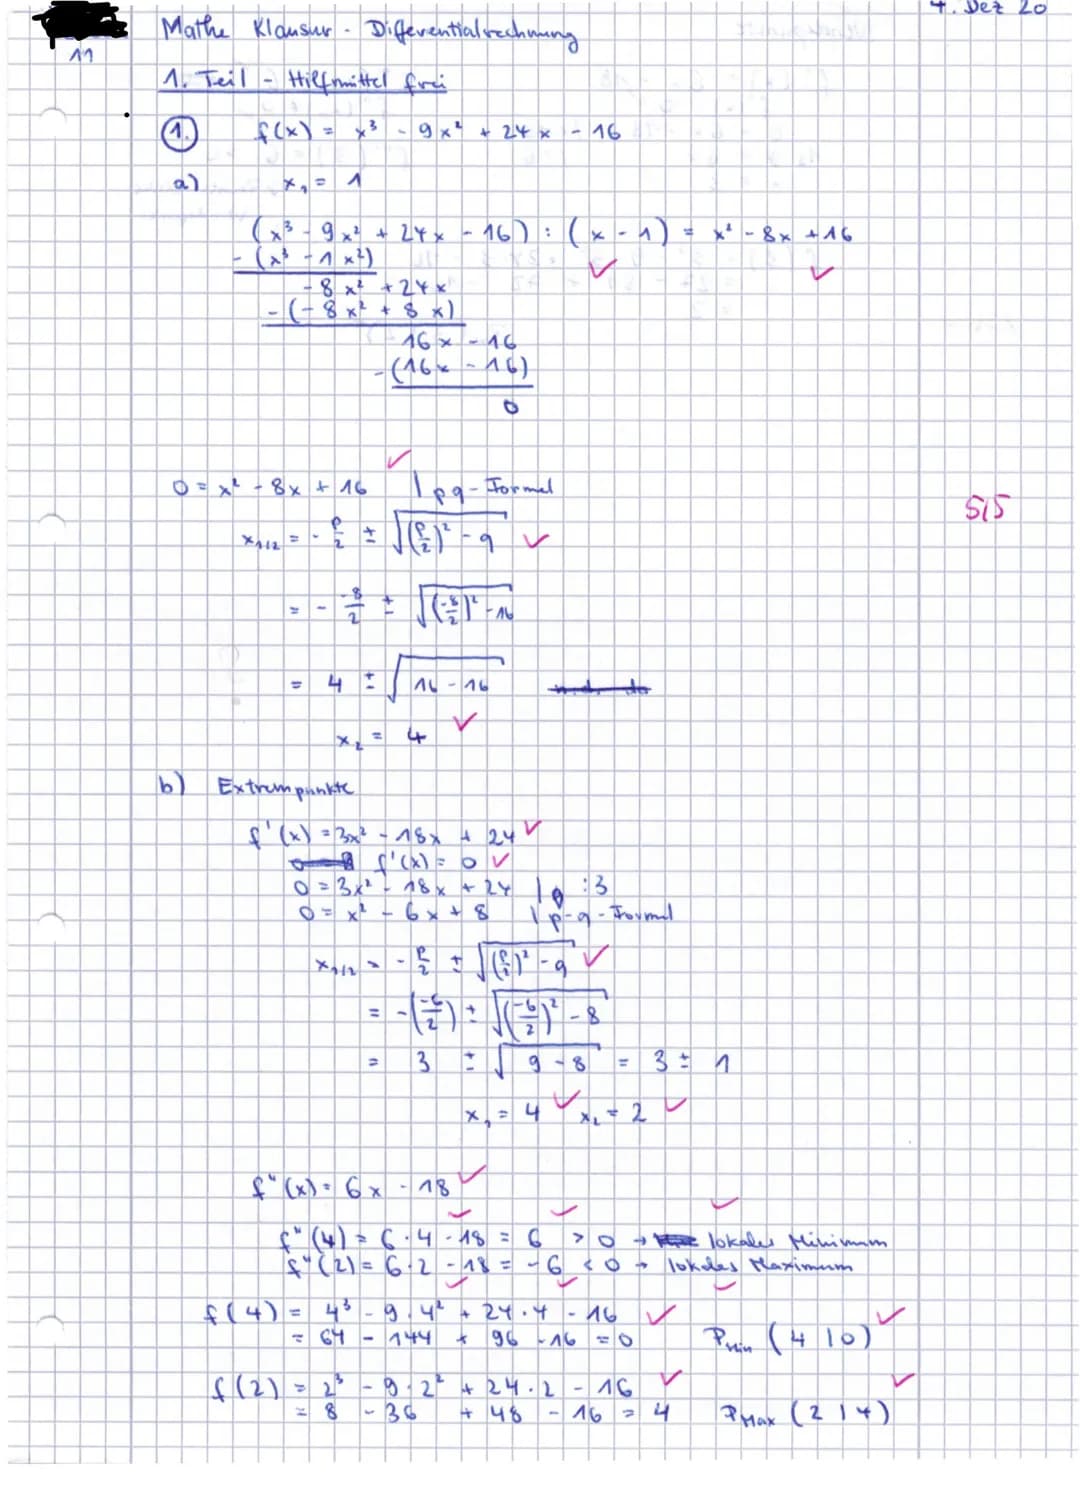 4. Dez 20
Mathe Klausur - Differentialrechnung
11
1. Teil - Hilfmittel frei
1. f(x) = x³ - 9x² + 24x - 16
a) x₁ = 1
(x³ - 9x² + 24x - 16) : (x - 1) = x² - 8x + 16
- (x³ - 1x²)
- 8x² + 24x
- (- 8x² + 8x)
16x - 16
- (16x - 16)
0
0 = x² - 8x + 16 | pq-Formel
5/5
x₁/₂ = - p/2 ± √((p/2)² - q)
= - -8/2 ± √((-8/2)² - 16)
= 4 ± √(16 - 16)
x₂ = 4
b) Extrempunkte
f'(x) = 3x² - 18x + 24
f'(x) = 0
0 = 3x² - 18x + 24 | :3
0 = x² - 6x + 8 | p-q-Formel
x₁/₂ = - p/2 ± √((p/2)² - q)
= -(-6/2) ± √((-6/2)² - 8)
= 3 ± √(9 - 8) = 3 ± 1
x₁ = 4 x₂ = 2
f"(x) = 6x - 18
f"(4) = 6·4 - 18 = 6 > 0 → lokales Minimum
f"(2) = 6·2 - 18 = -6 < 0 → lokales Maximum
f(4) = 4³ - 9·4² + 24·4 - 16
= 64 - 144 + 96 - 16 = 0 P Min (4|0)
f(2) = 2³ - 9·2² + 24·2 - 16
= 8 - 36 + 48 - 16 = 4 P Max (2|4)